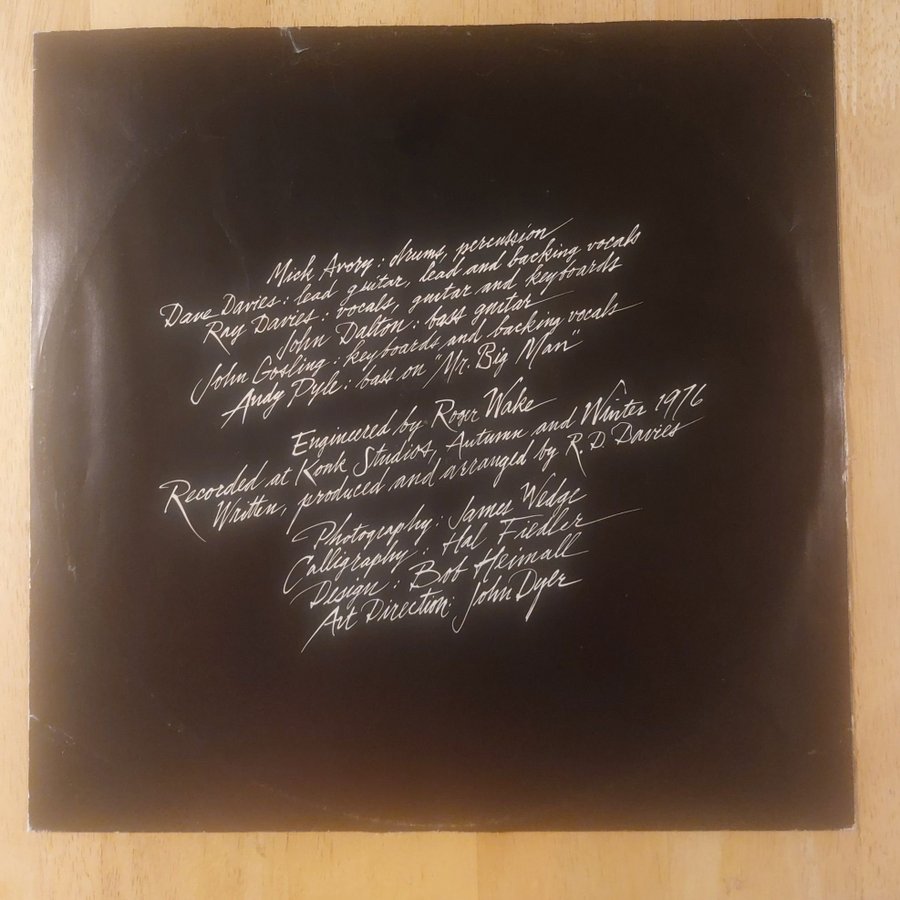 Mick Avory: drums, percussion
Dave Davies: lead guitar, lead and backing vocals
Ray Davies: vocals, guitar and keyboards
John Dalton: bass guitar
John Gosling: keyboards and backing vocals
Andy Pyle: bass on "Mr. Big Man"
Engineered by Roger Wake
Recorded at Konk Studios, Autumn and Winter 1976
Written, produced and arranged by R. D. Davies
Photography: James Wedge
Calligraphy: Hal Fiedler
Design: Bob Heimall
Art Direction: John Dyer